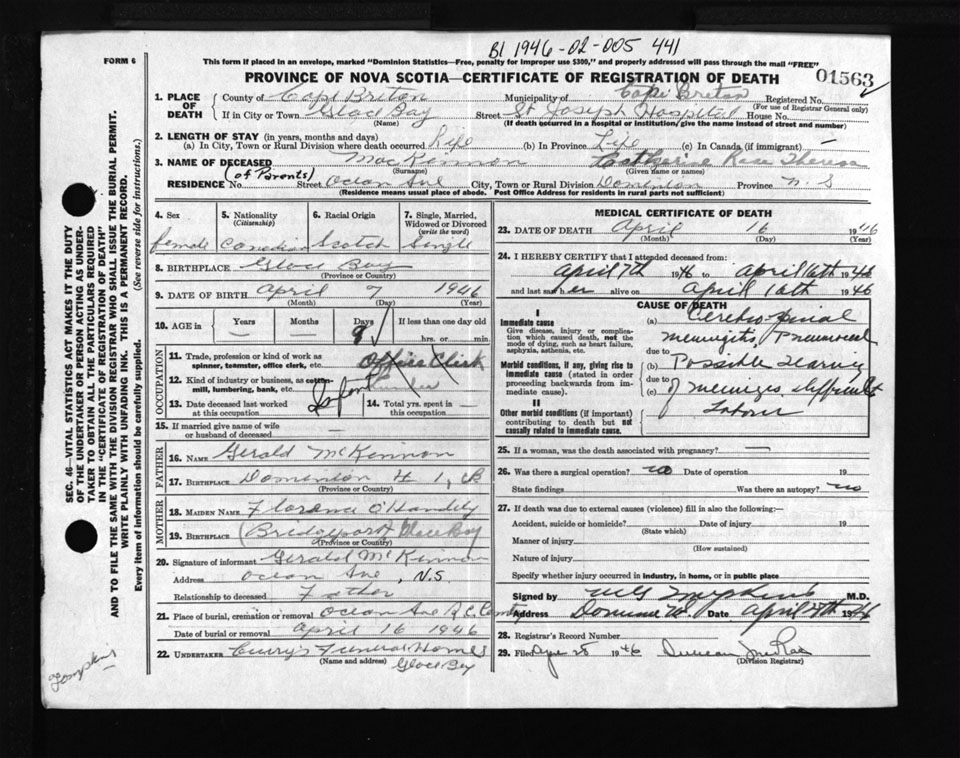 B1 1946-02-005 441
FORM 6
This form if placed in an envelope, marked "Dominion Statistics—Free, penalty for improper use $300," and properly addressed will pass through the mail "FREE"
PROVINCE OF NOVA SCOTIA—CERTIFICATE OF REGISTRATION OF DEATH
01563
1. PLACE OF DEATH
County of Cape Breton Municipality of Cape Breton Registered No.
(For use of Registrar General only)
If in City or Town Glace Bay Street St Joseph Hospital House No.
(Name) (If death occurred in a hospital or institution, give the name instead of street and number)
2. LENGTH OF STAY (in years, months and days)
(a) In City, Town or Rural Division where death occurred Life (b) In Province Life (c) In Canada (if immigrant) —
3. NAME OF DECEASED MacKinnon Catherine Rose Theresa
(Surname) (Given name or names)
(of Parents)
RESIDENCE No. Street Ocean Ave City, Town or Rural Division Dominion Province N.S
(Residence means usual place of abode. Post Office Address for residents in rural parts not sufficient)
4. Sex
female
5. Nationality (Citizenship)
Canadian
6. Racial Origin
Scotch
7. Single, Married, Widowed or Divorced (write the word)
Single
8. BIRTHPLACE Glace Bay
(Province or Country)
9. DATE OF BIRTH April 7 1946
(Month) (Day) (Year)
10. AGE in Years Months Days If less than one day old
— — 9 hrs. or min.
OCCUPATION
11. Trade, profession or kind of work as spinner, teamster, office clerk, etc. Office Clerk
12. Kind of industry or business, as cotton-mill, lumbering, bank, etc.
13. Date deceased last worked at this occupation 14. Total yrs. spent in this occupation —
15. If married give name of wife or husband of deceased —
FATHER
16. NAME Gerald McKinnon
17. BIRTHPLACE Dominion # 1, C.B
(Province or Country)
MOTHER
18. MAIDEN NAME Florence O'Handley
19. BIRTHPLACE (Bridgeport) Glace Bay
(Province or Country)
20. Signature of informant Gerald McKinnon
Address Ocean Ave, N.S.
Relationship to deceased Father
21. Place of burial, cremation or removal Ocean Ave R.C.
Date of burial or removal April 16 1946
22. UNDERTAKER Curry's Funeral Homes
(Name and address) Glace Bay
MEDICAL CERTIFICATE OF DEATH
23. DATE OF DEATH April 16 1946
(Month) (Day) (Year)
24. I HEREBY CERTIFY that I attended deceased from:
April 7th 1946 to April 16th 1946
and last saw her alive on April 16th 1946
CAUSE OF DEATH
I
Immediate cause
Give disease, injury or complication which caused death, not the mode of dying, such as heart failure, asphyxia, asthenia, etc.
Morbid conditions, if any, giving rise to immediate cause (stated in order proceeding backwards from immediate cause).
II
Other morbid conditions (if important) contributing to death but not causally related to immediate cause.
(a) Cerebro-spinal
meningitis, Pneumococcal
due to
(b) Possible tearing
due to
(c) of meninges. Difficult
Labour
25. If a woman, was the death associated with pregnancy? —
26. Was there a surgical operation? no Date of operation 19
State findings Was there an autopsy? no
27. If death was due to external causes (violence) fill in also the following:—
Accident, suicide or homicide? Date of injury 19
(State which)
Manner of injury
(How sustained)
Nature of injury
Specify whether injury occurred in industry, in home, or in public place
Signed by M.G. Tompkins M.D.
Address Dominion Date April 1946
28. Registrar's Record Number
29. Filed 1946 Duncan McRae
(Division Registrar)
SEC. 46—VITAL STATISTICS ACT MAKES IT THE DUTY OF THE UNDERTAKER OR PERSON ACTING AS UNDERTAKER TO OBTAIN ALL THE PARTICULARS REQUIRED IN THE "CERTIFICATE OF REGISTRATION OF DEATH" AND TO FILE THE SAME WITH THE DIVISION REGISTRAR WHO SHALL ISSUE THE BURIAL PERMIT.
WRITE PLAINLY WITH UNFADING INK. THIS IS A PERMANENT RECORD.
Every item of information should be carefully supplied. (See reverse side for instructions.)
Tompkins